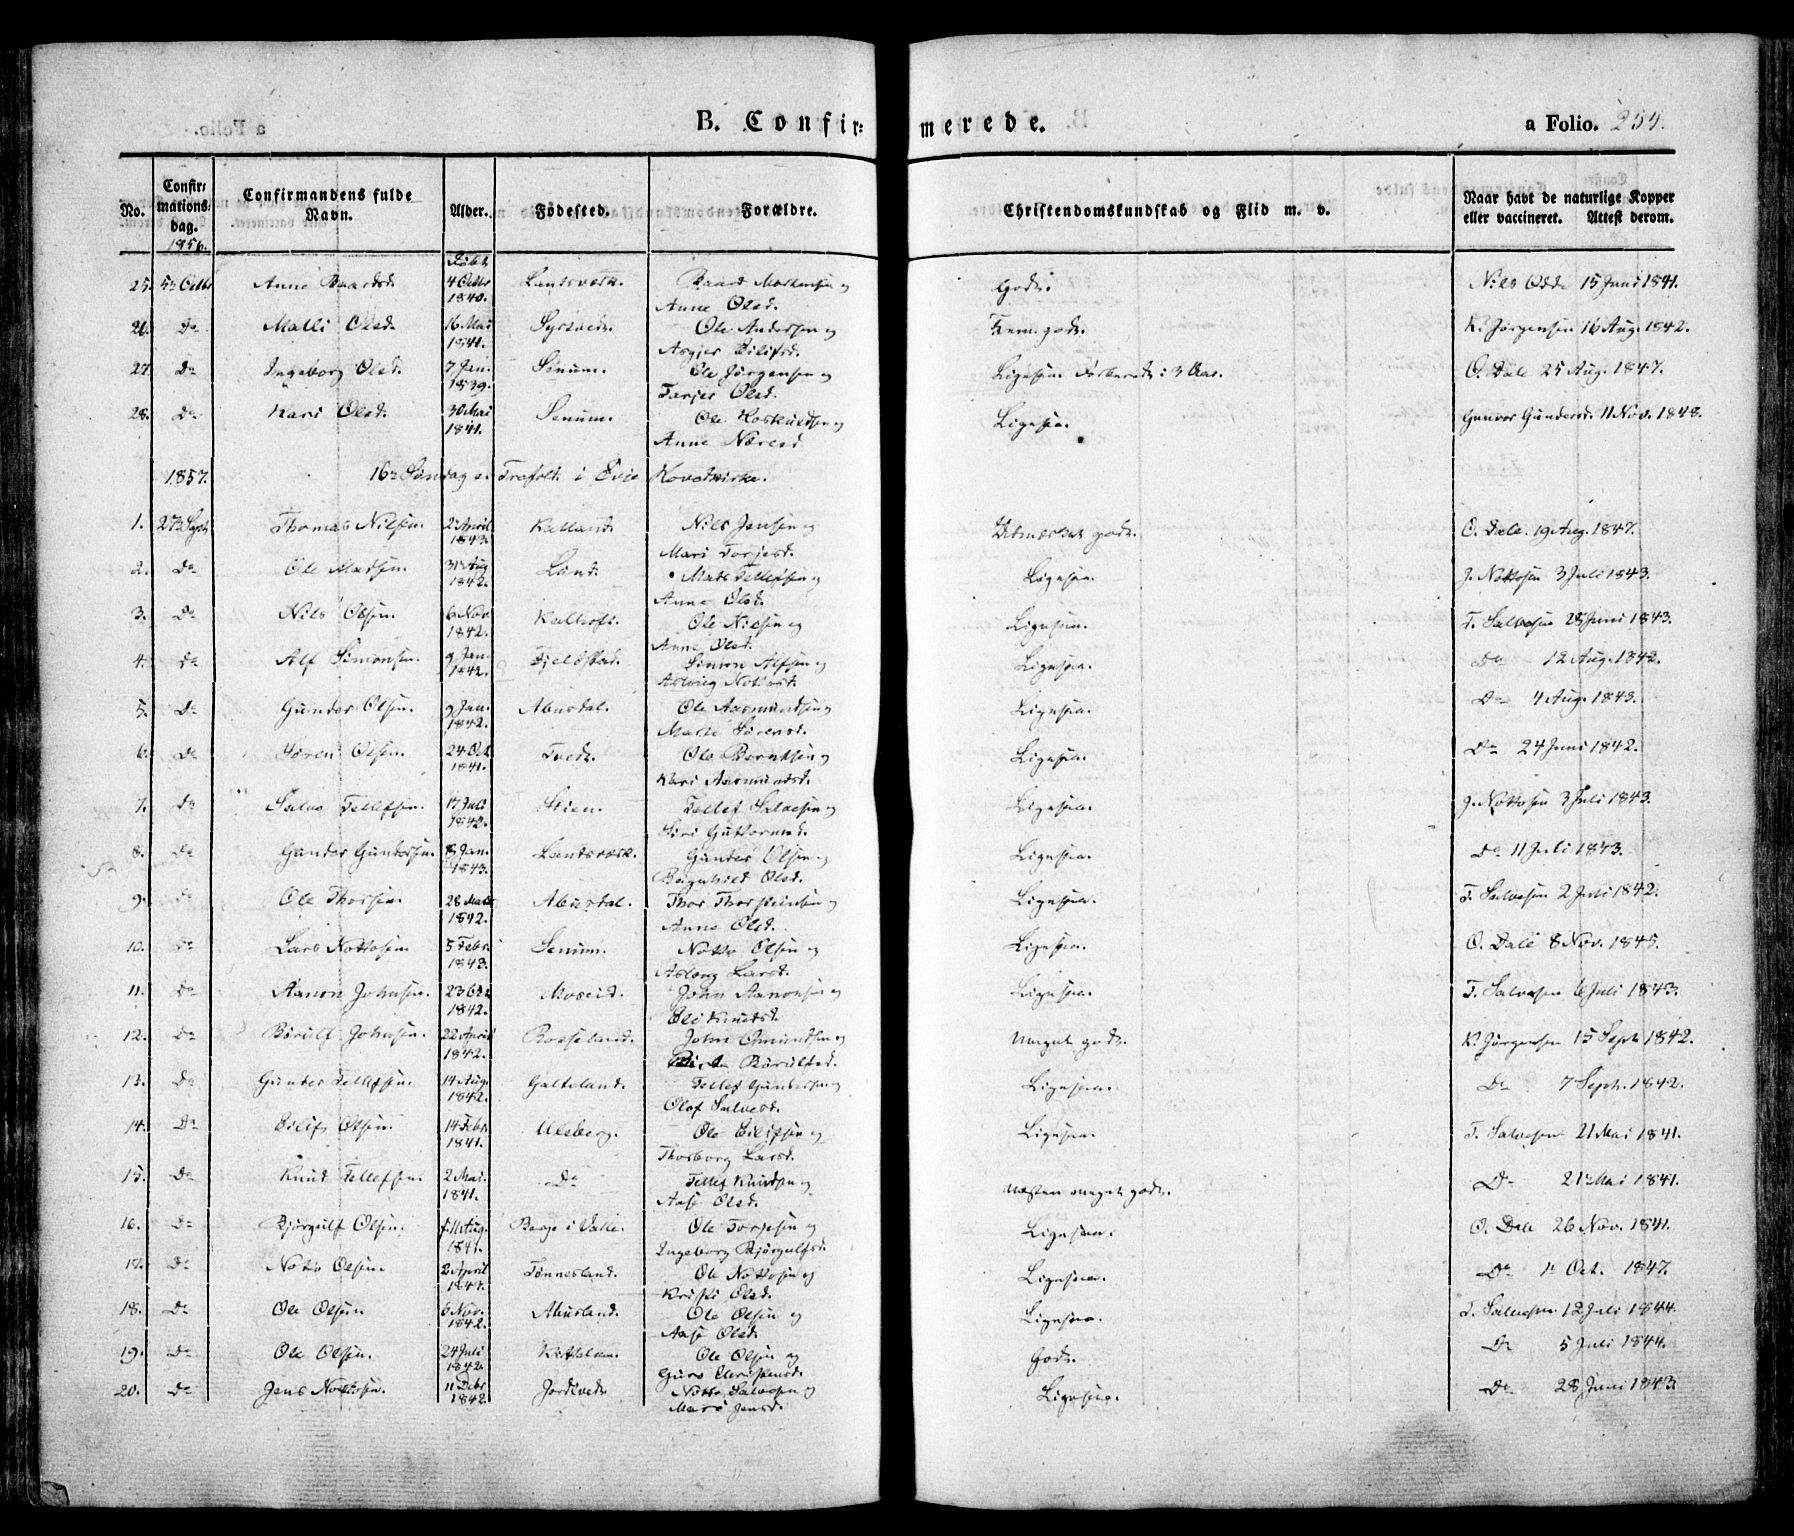 B. Confir= merede.
a Folio. 254.
No. Confirmationsdag. Confirmandens fulde Navn. Alder. Födested. Forældre. Christendomskundskab og Flid m. v. Naar havt de naturlige Kopper eller vaccineret. Attest derom.
1856.
Döbt
25. 5te Octbr Anne Baardsd. 4 Octbr 1840. Landsværk. Baard Mortensen og Godt. Nils Odde 15 Juni 1841.
Anne Olsd.
26. Do Malli Olsd. 16 Mai 1841. Syrtveit. Ole Andersen og Tem. godt. K. Jørgensen 16 Aug. 1842.
Asgjer Eilifsd.
27. Do Ingeborg Olsd. 7 Jan. 1839. Senum. Ole Jørgensen og Ligesaa. Forberedt i 3 Aar. O. Dale 25 Aug. 1847.
Tarjer Olsd.
28. Do Kari Olsd. 30 Mai 1841. Senum. Ole Hoskuldsen og Ligesaa. Gunvor Gundersd. 11 Nov. 1848.
Anne
1857. 16de Søndag e. Trefolt. i Evie Hovedkirke.
1. 27de Septr Thomas Nilsen. 2 April 1843. Kalland. Nils Jensen og Udmærket godt. O. Dale. 19 Aug. 1847.
Mari Torjersd.
2. Do Ole Madsen. 31te Aug 1842. Lund. Mads Tellefsen og Ligesaa. J. Nottosen 3 Juli 1843.
Anne Olsd.
3. Do Nils Olsen. 6 Nov. 1842. Kalhoft. Ole Nielsen og Ligesaa. T. Salvesen 28 Juni 1843.
Anne Olsd.
4. Do Alf Simonsen. 9 Jan. 1842. Fjeldstad. Simon Alfsen og Ligesaa. Do 12 Aug. 1842.
Aslaug Nottosd.
5. Do Gunder Olsen. 9 Jan. 1842. Abusdal. Ole Aasmundsen og Ligesaa. Do 4 Aug. 1843.
Marte Sørensd.
6. Do Søren Olsen. 24 Oct. 1841. Tvedt. Ole Berntsen og Ligesaa. Do 24 Juni 1842.
Kari Aasmundsd.
7. Do Salve Tellefsen. 17 Juli 1842. Stien. Tellef Salvesen og Ligesaa. J. Nottosen 3 Juli 1843.
Siri Guttormsd.
8. Do Gunder Gundersen. 8 Jan. 1843. Landsværk. Gunder Olsen og Ligesaa. Do 11 Juli 1843.
Bergnhild Olsd.
9. Do Ole Thorsen. 28 Marts 1842. Abusdal. Thor Thorsteinsen og Ligesaa. T. Salvesen 2 Juli 1842.
Anne Olsd.
10. Do Lars Nottosen. 5 Febr. 1843. Senum. Notto Olsen og Ligesaa. O. Dale 8 Nov. 1845.
Aslaug Larsd.
11. Do Aanon Johnsen. 23 Oct 1842. Moseid. John Aanonsen og Ligesaa. T. Salvesen 6 Juli 1843.
Eli Knudsd.
12. Do Börulf Johnsen. 22 April 1842. Rosseland. John Omundsen og Meget godt. K. Jørgensen 15 Septr 1842.
Börulfsd.
13. Do Gunder Tellefsen. 14 Aug. 1842. Galteland. Tellef Gundersen og Ligesaa. Do 7 Septr. 1842.
Olof Salvesd.
14. Do Eilif Olsen. 14 Febr. 1841. Ulsberg. Ole Eilifsen og Ligesaa. T. Salvesen 21 Mai 1841.
Thorborg Larsd.
15. Do Knud Tellefsen. 2 Mai. 1841. Do Tellef Knudsen og Næsten meget godt. Do 21 Mai 1841.
Aase Olsd.
16. Do Bjørgulf Olsen. 11 Aug. 1841. Berge i Valle. Ole Torjesen og Ligesaa. O. Dale 26 Nov. 1841.
Ingeborg Bjørgulfsd.
17. Do Notto Olsen. 2 April Tønnesland. Ole Nottosen og Ligesaa. Do 1te Oct. 1847.
Kristi Olsd.
18. Do Ole Olsen 6 Nov. 1842. Abusland. Ole Olsen og Ligesaa. T. Salvesen 12 Juli 1844.
Aase Olsd.
19. Do Ole Olsen. 24 Juli 1842. Ole Olsen og Godt. Do 5 Juli 1844.
Guro Christensd.
20. Do Jens Nottosen. 11 Debr 1842. Jordtvedt. Notto Salvesen og Ligesaa. Do 28 Juni 1843.
Mari Jensd.